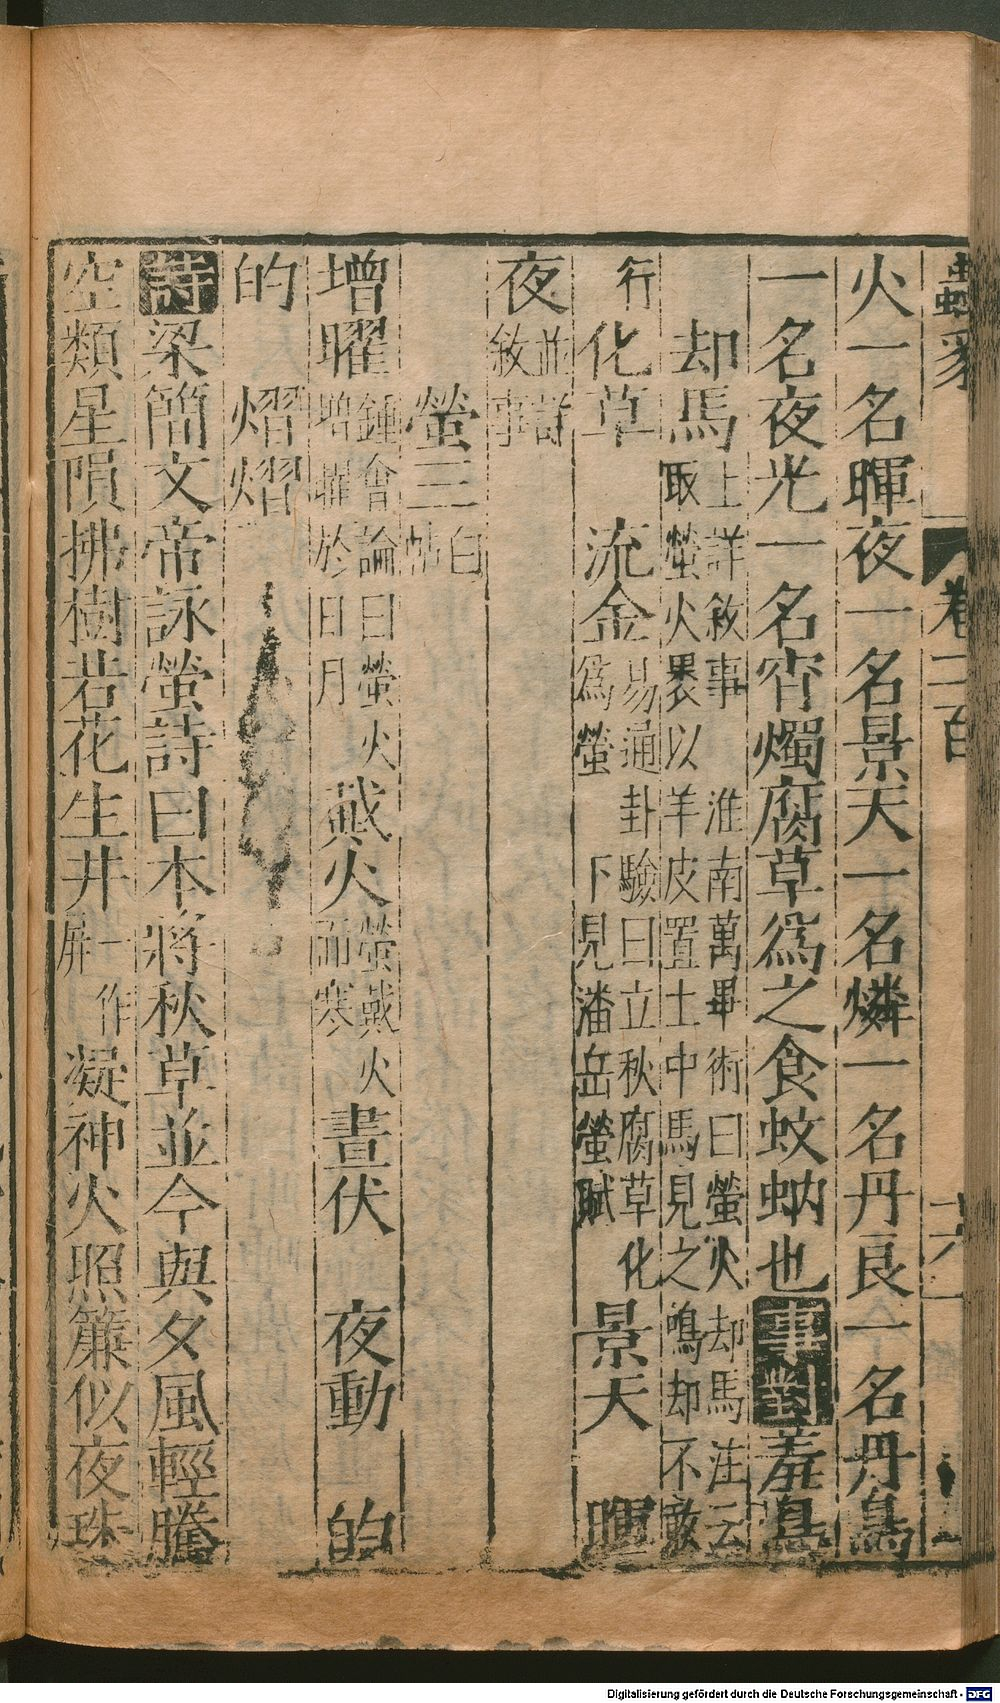 蟲豸 卷一百 十六
火一名暉夜一名景天一名燐一名丹良一名丹鳥
一名夜光一名宵燭腐草爲之食蚊蚋也事對羞鳥
却馬上詳敘事 淮南萬畢術曰螢火却馬注云取螢火裹以羊皮置土中馬見之鳴却不敢
行化草 流金易通卦驗曰立秋腐草化爲螢 下見潘岳螢賦景天 暉
夜並詳敘事
螢三白帖
增曜鍾會論曰螢火增曜於日月戴火螢戴火而寒晝伏 夜動 的
的 熠熠
詩梁簡文帝詠螢詩曰本將秋草並今與夕風輕騰
空類星隕拂樹若花生井一作屏凝神火照簾似夜珠
Digitalisierung gefördert durch die Deutsche Forschungsgemeinschaft - DFG